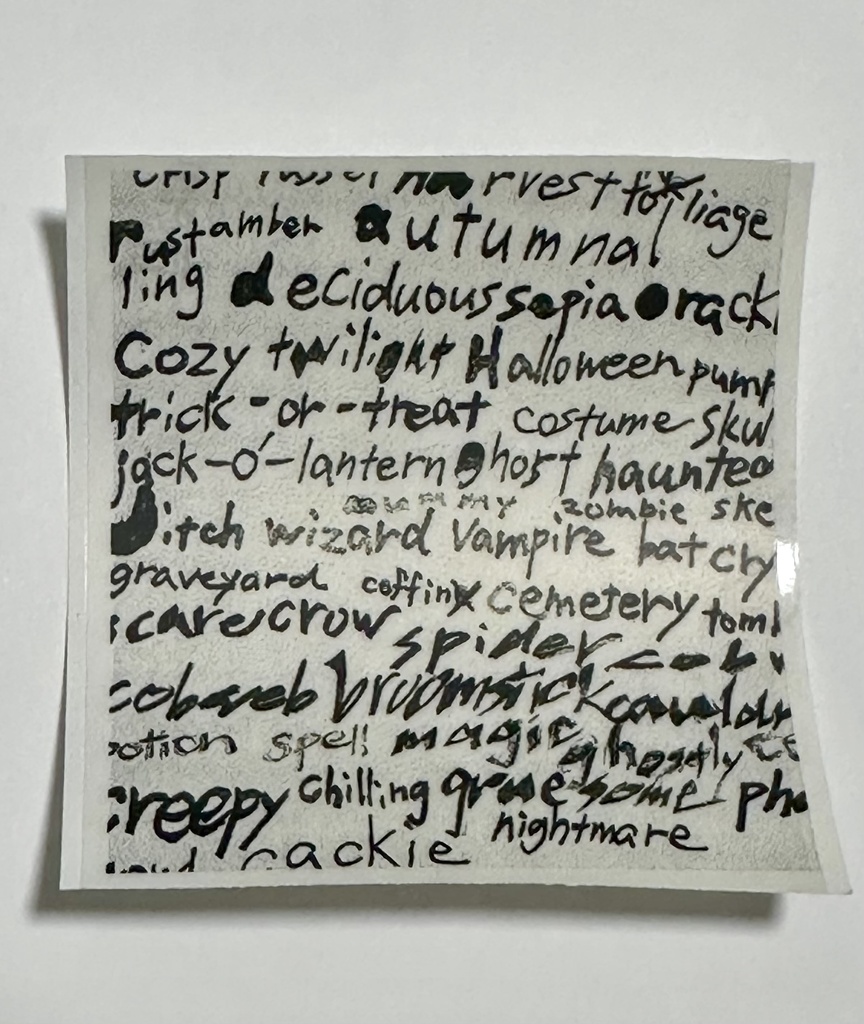 crisp russet harvest foliage
rust amber autumnal
ling deciduous sepia crack
Cozy twilight Halloween pump
trick-or-treat costume skul
jack-o'-lantern ghost haunted
mummy zombie ske
witch wizard vampire bat cry
graveyard coffin cemetery tomb
scarecrow spider cobw
cobweb broomstick cauldr
potion spell magic ghostly
creepy chilling gruesome pha
cackle nightmare